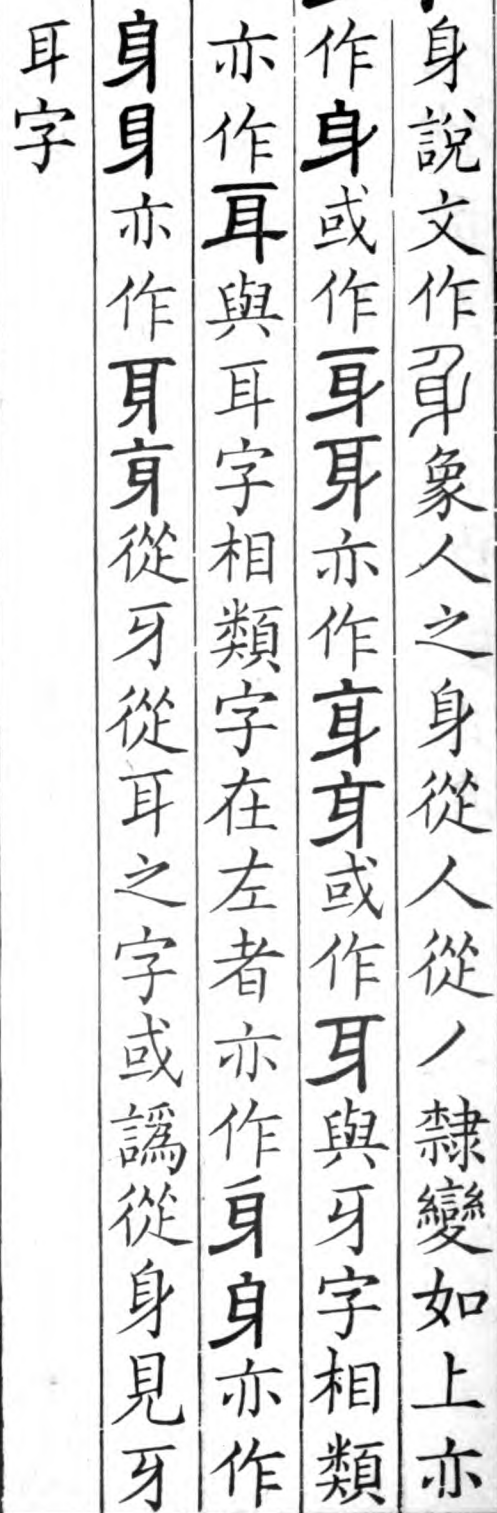 身說文作𨈑象人之身從人從丿隸變如上亦
作身或作亦作或作耳與牙字相類
亦作耳與耳字相類字在左者亦作身身亦作
身亦作從牙從耳之字或譌從身見牙
耳字